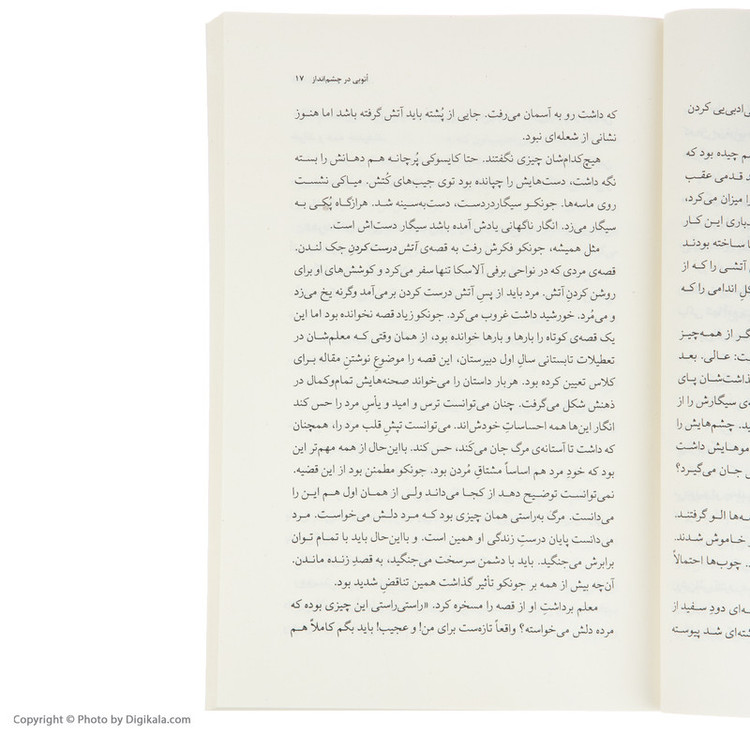 اتوبی در چشم‌انداز ۱۷
که داشت رو به آسمان می‌رفت. جایی از پُشته باید آتش گرفته باشد اما هنوز
نشانی از شعله‌ای نبود.
هیچ‌کدام‌شان چیزی نگفتند. حتا کایسوکی پُرچانه هم دهانش را بسته
نگه داشت، دست‌هایش را چپانده بود توی جیب‌های کُتش. میاکی نشست
روی ماسه‌ها. جونکو سیگاردردست، دست‌به‌سینه شد. هرازگاه پُکی به
سیگار می‌زد. انگار ناگهانی یادش آمده باشد سیگار دست‌اش است.
مثل همیشه، جونکو فکرش رفت به قصه‌ی آتش درست کردنِ جک لندن.
قصه‌ی مردی که در نواحی برفی آلاسکا تنها سفر می‌کرد و کوشش‌های او برای
روشن کردنِ آتش. مرد باید از پسِ آتش درست کردن برمی‌آمد وگرنه یخ می‌زد
و می‌مُرد. خورشید داشت غروب می‌کرد. جونکو زیاد قصه نخوانده بود اما این
یک قصه‌ی کوتاه را بارها و بارها خوانده بود، از همان وقتی که معلم‌شان در
تعطیلات تابستانی سالِ اول دبیرستان، این قصه را موضوعِ نوشتنِ مقاله برای
کلاس تعیین کرده بود. هربار داستان را می‌خواند صحنه‌هایش تمام‌وکمال در
ذهنش شکل می‌گرفت. چنان می‌توانست ترس و امید و یأسِ مرد را حس کند
انگار این‌ها همه احساساتِ خودش‌اند. می‌توانست تپشِ قلب مرد را، همچنان
که داشت تا آستانه‌ی مرگ جان می‌کَند، حس کند. بااین‌حال از همه مهم‌تر این
بود که خودِ مرد هم اساساً مشتاقِ مُردن بود. جونکو مطمئن بود از این قضیه.
نمی‌توانست توضیح دهد از کجا می‌داند ولی از همان اول هم این را
می‌دانست. مرگ به‌راستی همان چیزی بود که مرد دلش می‌خواست. مرد
می‌دانست پایان درستِ زندگی او همین است. و بااین‌حال باید با تمام توان
برابرش می‌جنگید. باید با دشمن سرسخت می‌جنگید، به قصدِ زنده ماندن.
آن‌چه بیش از همه بر جونکو تأثیر گذاشت همین تناقضِ شدید بود.
معلم برداشتِ او از قصه را مسخره کرد. «راستی‌راستی این چیزی بوده که
مرده دلش می‌خواسته؟ واقعاً تازه‌ست برای من! و عجیب! باید بگم کاملاً هم
ی‌ادبی‌یی کردن
م چیده بود که
د قدمی عقب
را میزان می‌کرد،
باری این کار
ا ساخته بودند
آتشی را که از
کلِ اندامی را که
گر از همه‌چیز
ت: عالی. بعد
ذاشت‌شان پای
ی سیگارش را از
ید. چشم‌هایش را
موهایش داشت
جان می‌گیرد؟
ه‌ها الو گرفتند.
خاموش شدند.
چوب‌ها احتمالاً
ه‌ای دودِ سفید از
شته‌ای شد پیوسته
Copyright © Photo by Digikala.com